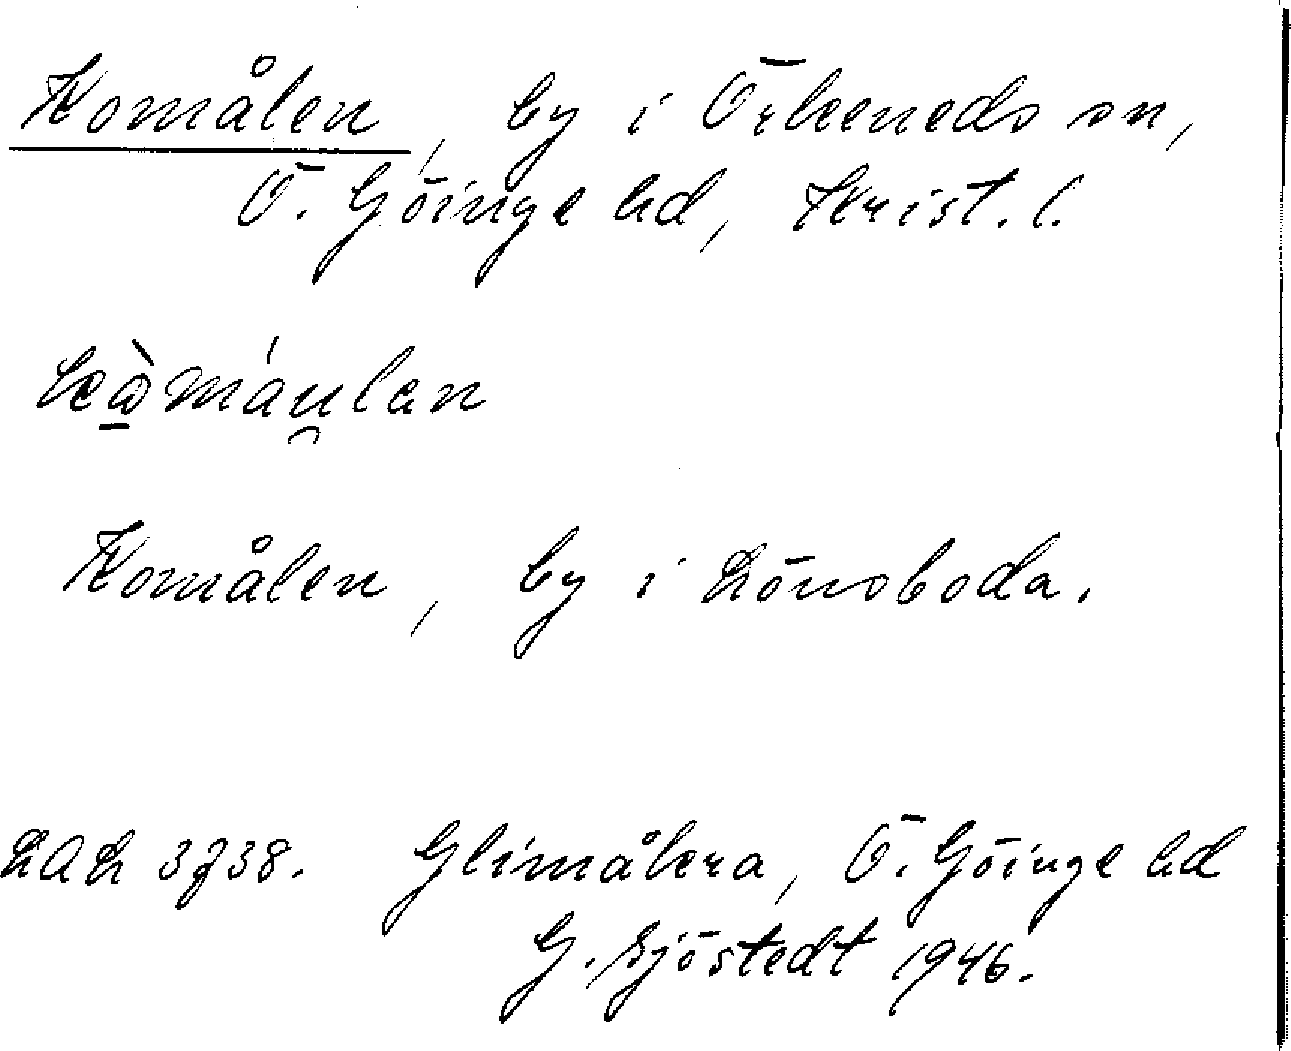 Komålen, by i Örkeneds sn,
Ö. Göinge hd, Krist. l.
Komålen, by i Lönsboda.
LAL 3738. Glimåkra, Ö. Göinge hd
G. Sjöstedt 1946.